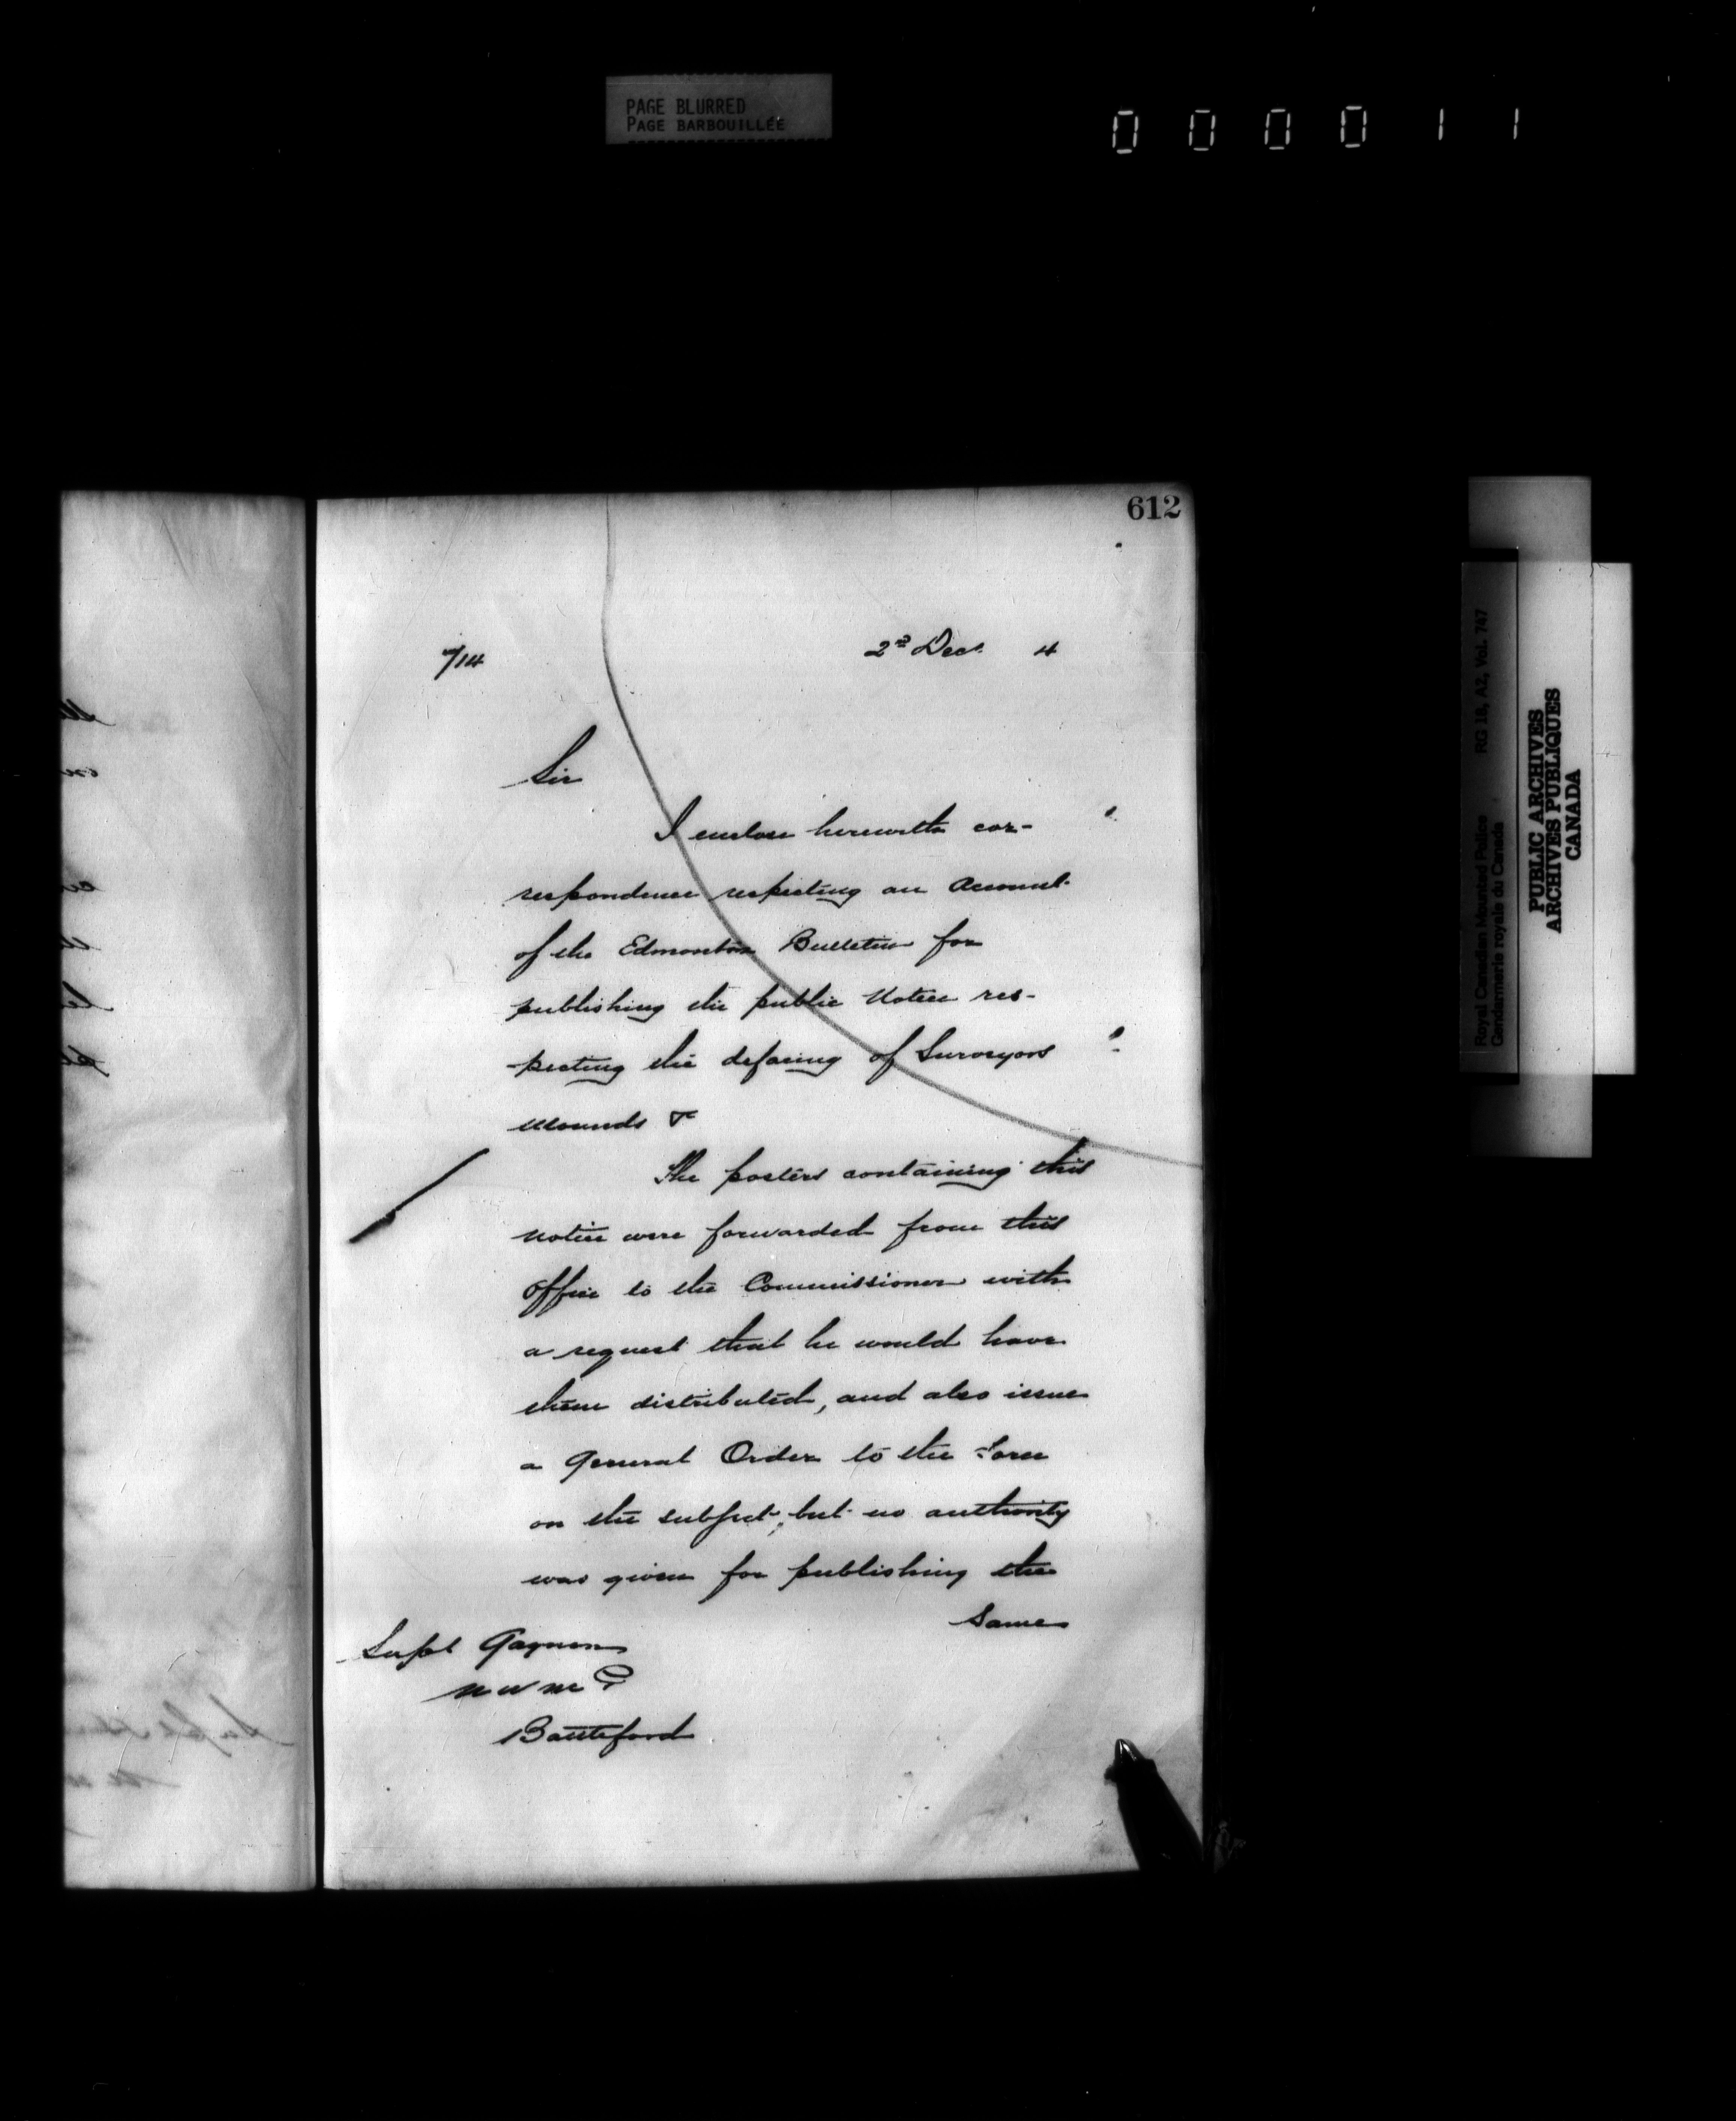 PAGE BLURRED
PAGE BARBOUILLÉE
0 0 0 0 1 1
612
7/14
2nd Dec. 4
Sir
I enclose herewith cor-
respondence respecting an account
of the Edmonton Bulletin for
publishing the public Notice res-
-pecting the defacing of Surveyors
mounds &
The posters containing this
notice were forwarded from this
office to the Commissioner with
a request that he would have
them distributed, and also issue
a General Order to the Force
on the subject, but no authority
was given for publishing the
Same
Supt Gagnon
N W M P
Battleford
Royal Canadian Mounted Police RG 18, A2, Vol. 747
Gendarmerie royale du Canada
PUBLIC ARCHIVES
ARCHIVES PUBLIQUES
CANADA